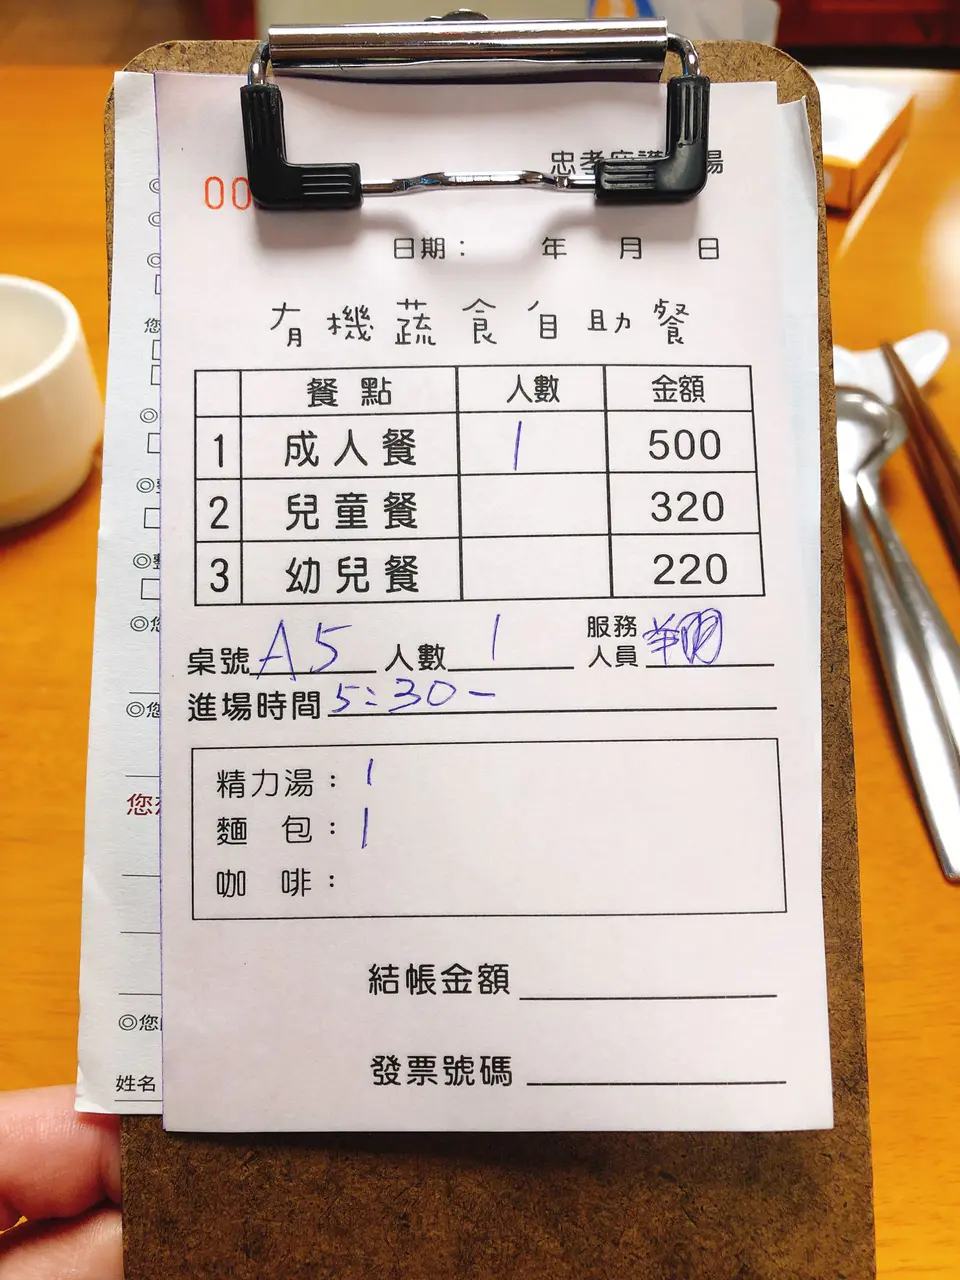 忠孝
00
日期： 年 月 日
有機蔬食自助餐
餐點 人數 金額
1 成人餐 1 500
2 兒童餐 320
3 幼兒餐 220
桌號 A5 人數 1 服務人員 翔
進場時間 5:30-
精力湯： 1
麵 包： 1
咖 啡：
結帳金額
發票號碼
您
◎整
◎整
◎您
◎您
您
◎您
姓名